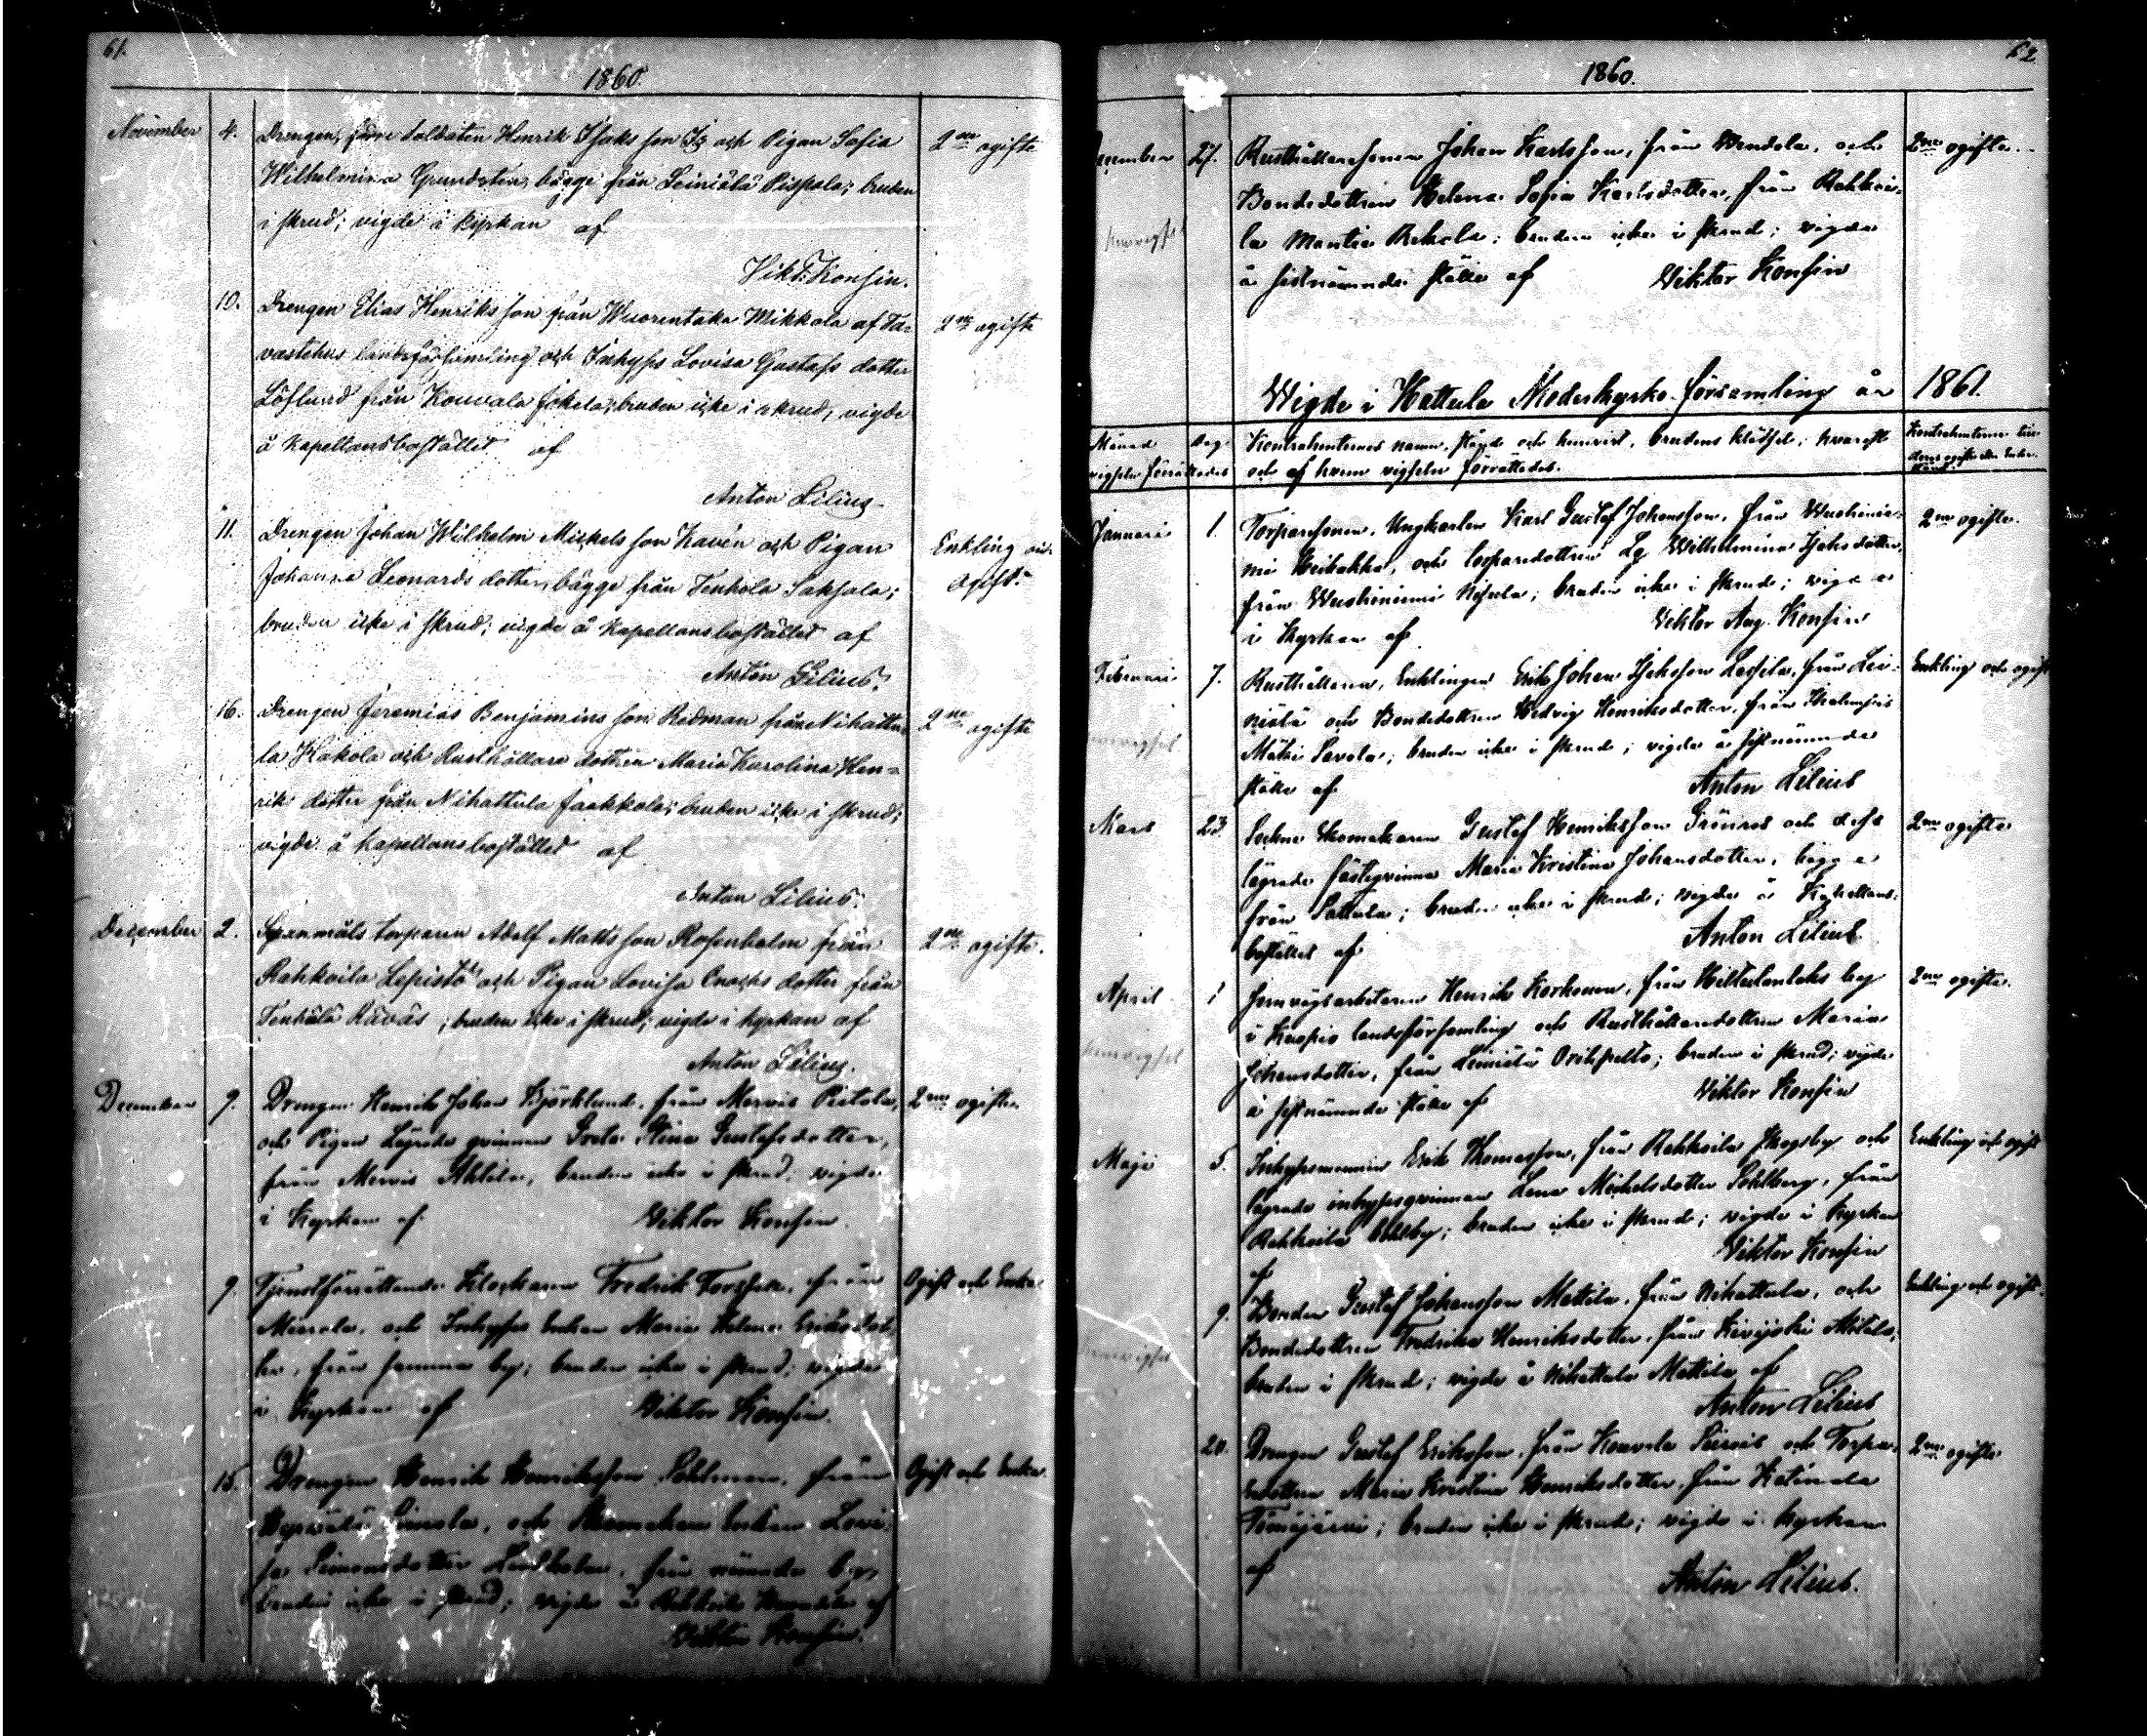 61.
1860.
November 4. Drengen, förre Soldaten Henrik Isaks son Is och Pigan Sofia 2ne ogifte
Wilhelmina Grundsten, bägge från Leiniälä Pispala; bruden
i skrud; vigde i kyrkan af
Vikt. Konsin.
10. Drengen Elias Henriks son från Wuorentaka Mikkola af Ta- 2ne ogifte
vastehus landsförsamling och Inhyses Lovisa Gustafs dotter
Löflund från Kouvala Jokela; bruden icke i skrud, vigde
å Kapellansbostället af
Anton Lilius.
11. Drengen Johan Wilhelm Mickels son Kavén och Pigan Enkling och
Johanna Leonards dotter, bägge från Tenhola Saksala; ogift.
bruden icke i skrud; vigde å Kapellansbostället af
Anton Lilius.
16. Drengen Jeremias Benjamins son Redman från Nihattu- 2ne ogifte
la Kakola och Rusthållare dottren Maria Karolina Hen-
riks dotter från Nihattula Jaakkola; bruden icke i skrud;
vigde å Kapellansbostället af
Anton Lilius.
December 2. Spanmåls torparen Adolf Matts son Rosenholm från 2ne ogifte.
Rahkoila Lepistö och Pigan Lovisa Enochs dotter från
Tenhiälä Räväs; bruden icke i skrud; vigde i kyrkan af
Anton Lilius.
December 9. Drengen Henrik Johan Björklund, från Mervis Pietola, 2ne ogifte.
och Pigan Lägrade qvinnan Greta Stina Gustafsdotter,
från Mervis Ahlila, bruden icke i skrud; vigde
i Kyrkan af Viktor Konsin.
9. Tjenstförrättande Klockaren Fredrik Forssell, från Ogift och Enka.
Mierola, och Inhyses Enkan Maria Helena Eriksdot-
ter, från samma by; bruden icke i skrud; vigde
i Kyrkan af Viktor Konsin.
15. Drengen Henrik Henriksson Sahlman, från Ogift och Enka.
Simola, och Skomakare Enkan Lovi-
sa Simonsdotter från nämnde by,
bruden icke i skrud; vigde å Rahkoila af
Viktor Konsin.
62
1860.
December 27. Rusthållaresonen Johan Karlsson, från Wendola, och 2ne ogifte.
Bondedottren Helena Sofia Karlsdotter, från Rahkoi-
hemvigsel la Mantere Rekola; bruden icke i skrud; vigde
å sistnämnde ställe af Viktor Konsin
Wigde i Hattula Moderkyrko-församling år 1861.
Månad Dag Kontrahenternas namn, stånd och hemvist, brudens klädsel, hvarest Kontrahenterna
vigseln förrättades och af hvem vigseln förrättades.
Januari 1. Torparesonen, Ungkarlen Karl Gustaf Johansson, från Wuohinie- 2ne ogifte.
mi Heikakka, och torparedottren Lg Wilhelmina Isaksdotter,
från Wuohiniemi bruden icke i skrud; vigde
i Kyrkan af Viktor Aug. Konsin
Februari 7. Rusthållaren, Enklingen Erik Johan Isaksson Lassila, från Lei- Enkling och ogift
niälä och Bondedottren Hedvig Henriksdotter, från Ihalempis
hemvigsel Mäki Savola; bruden icke i skrud; vigde å sistnämnde
ställe af Anton Lilius
Mars 23. Sockne Skomakaren Gustaf Henriksson Grönros och dess 2ne ogifte
lägrade fästeqvinna Maria Kristina Johansdotter, bägge
från Sattula; bruden icke i skrud; vigde å Kapellans-
bostället af Anton Lilius
April 1 Jernvägsarbetaren Henrik Korhonen, från by 2ne ogifte.
i Kuopio landsförsamling och Rusthållaredottren Maria
hemvigsel Johansdotter, från Leiniälä Orihpelto; bruden i skrud; vigde
å sistnämnde ställe af Viktor Konsin
Maji 5. Inhysesmannen Erik Thomasson, från Rahkoila Skogsby och Enkling och ogift
lägrade inhysesqvinnan Lena Mickelsdotter Sohlberg, från
Rahkoila bruden icke i skrud; vigde i kyrkan
af Viktor Konsin
9. Bonden Gustaf Johansson Mattila, från Nihattula, och Enkling och ogift.
hemvigsel Bondedottren Fredrika Henriksdotter, från Kivijoki Mikola;
bruden i skrud; vigde å Nihattula Mattila af
Anton Lilius
20. Drengen Gustaf Eriksson, från Kouvola Siirois och Torpa- 2ne ogifte
redottren Maria Kristina Henriksdotter, från Katinala
Tömäjärvi; bruden icke i skrud; vigde i kyrkan
af Anton Lilius.